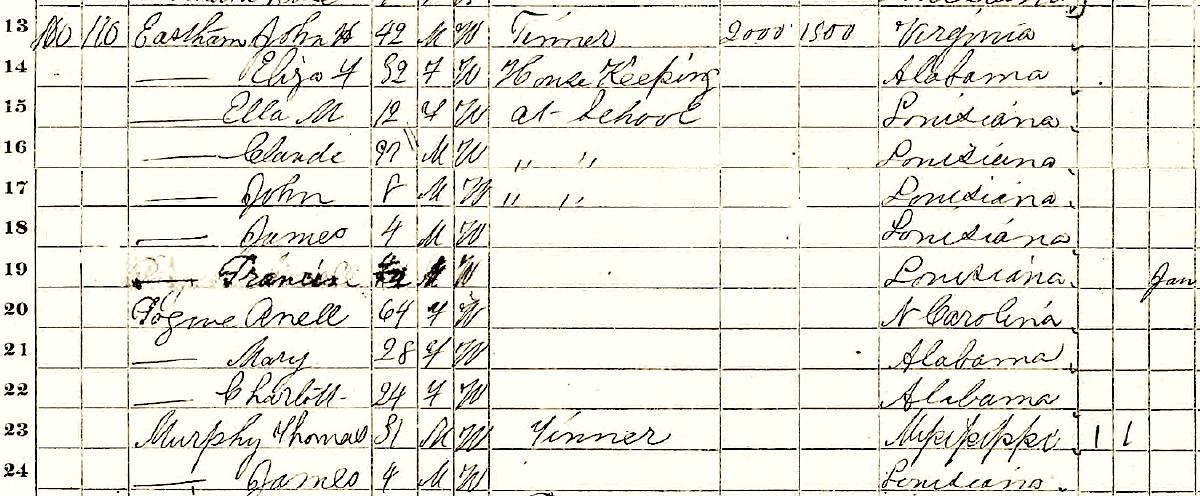 13 Eastham John H 42 M W Tinner 2000 1500 Virginia
14 —— Eliza F 32 F W House Keeping Alabama
15 —— Ella M 12 F W at School Louisiana
16 —— Claude M W " " Louisiana
17 —— John 8 M W " " Louisiana
18 —— James 4 M W Louisiana
19 —— Francis M W Louisiana Jan
20 Anell 64 F W N Carolina
21 —— Mary 28 F W Alabama
22 —— Charlott 24 F W Alabama
23 Murphy Thomas 31 M W Tinner Mississippi 1 1
24 —— James 4 M W Louisiana